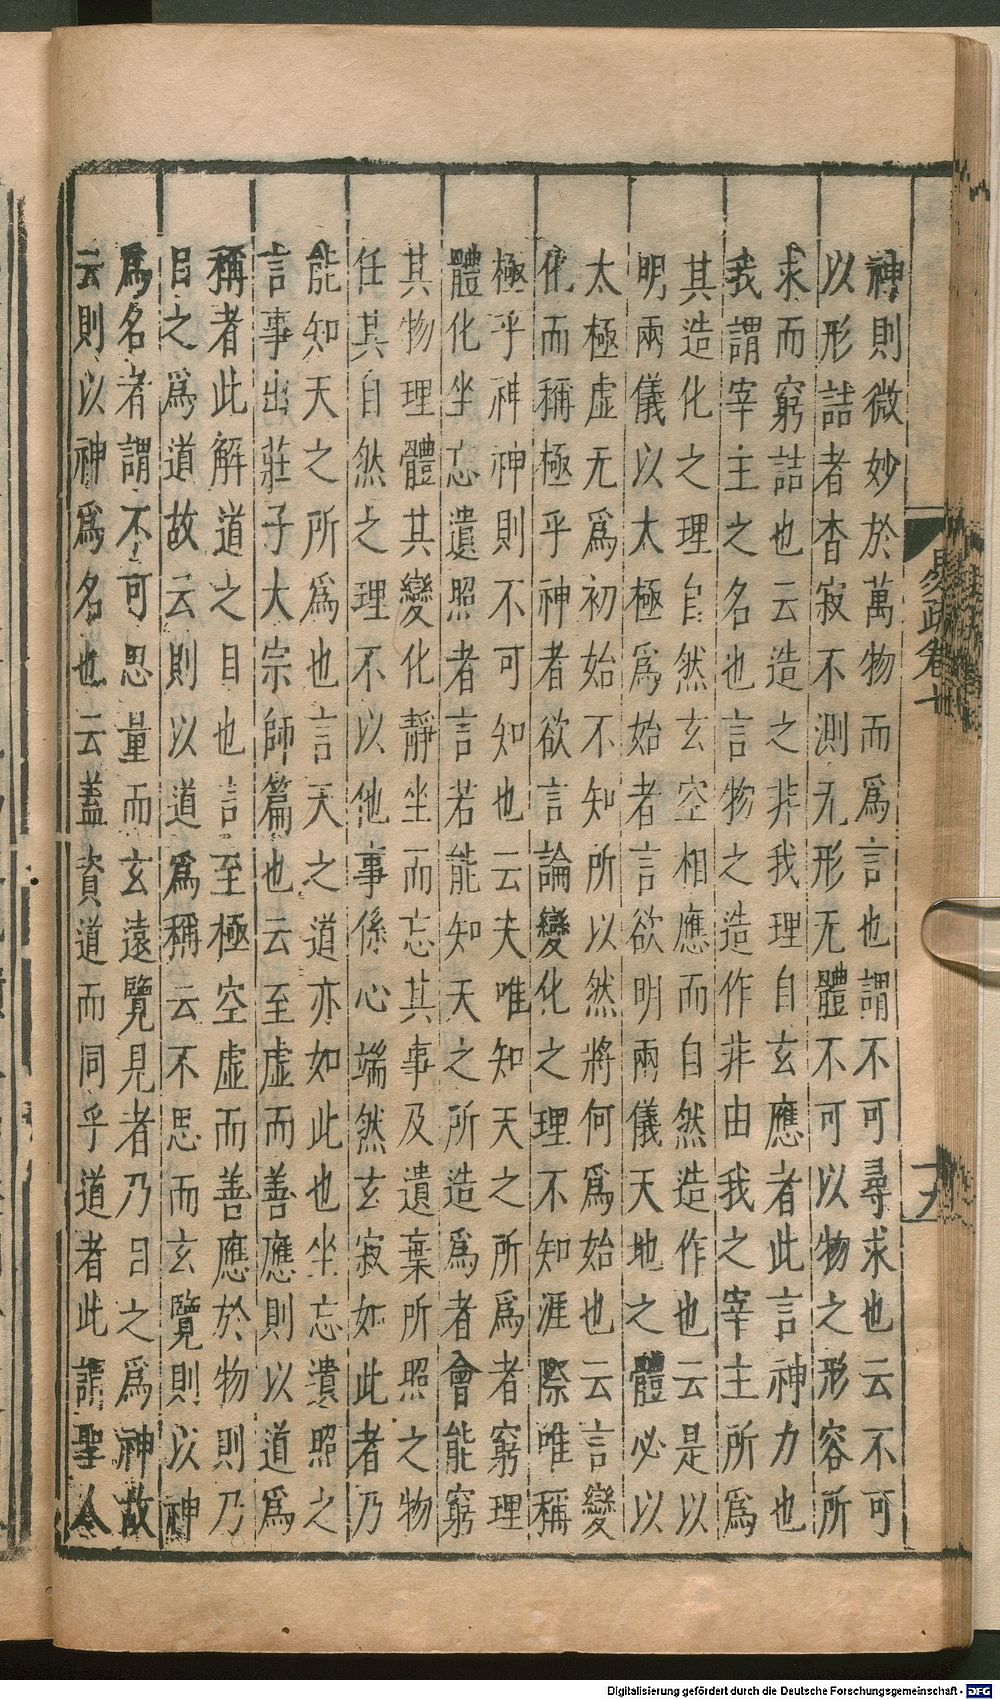 神則微妙於萬物而爲言也謂不可尋求也云不可
以形詰者杳寂不測无形无體不可以物之形容所
求而窮詰也云造之非我理自玄應者此言神力也
我謂宰主之名也言物之造作非由我之宰主所爲
其造化之理自然玄空相應而自然造作也云是以
明兩儀以太極爲始者言欲明兩儀天地之體必以
太極虛无爲初始不知所以然將何爲始也云言變
化而稱極乎神者欲言論變化之理不知涯際唯稱
極乎神神則不可知也云夫唯知天之所爲者窮理
體化坐忘遺照者言若能知天之所造爲者會能窮
其物理體其變化靜坐而忘其事及遺棄所照之物
任其自然之理不以他事係心端然玄寂如此者乃
能知天之所爲也言天之道亦如此也坐忘遺照之
言事出莊子大宗師篇也云至虛而善應則以道爲
稱者此解道之目也言至極空虛而善應於物則乃
目之爲道故云則以道爲稱云不思而玄覽則以神
爲名者謂不可思量而玄遠覽見者乃目之爲神故
云則以神爲名也云蓋資道而同乎道者此謂聖人
易疏卷十
十九
Digitalisierung gefördert durch die Deutsche Forschungsgemeinschaft - DFG